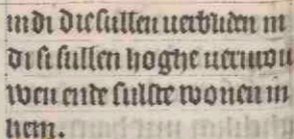 in di die sullen uerbliden in
di si sullen hoghe uerurou
wen ende sulste wonen in
hem.